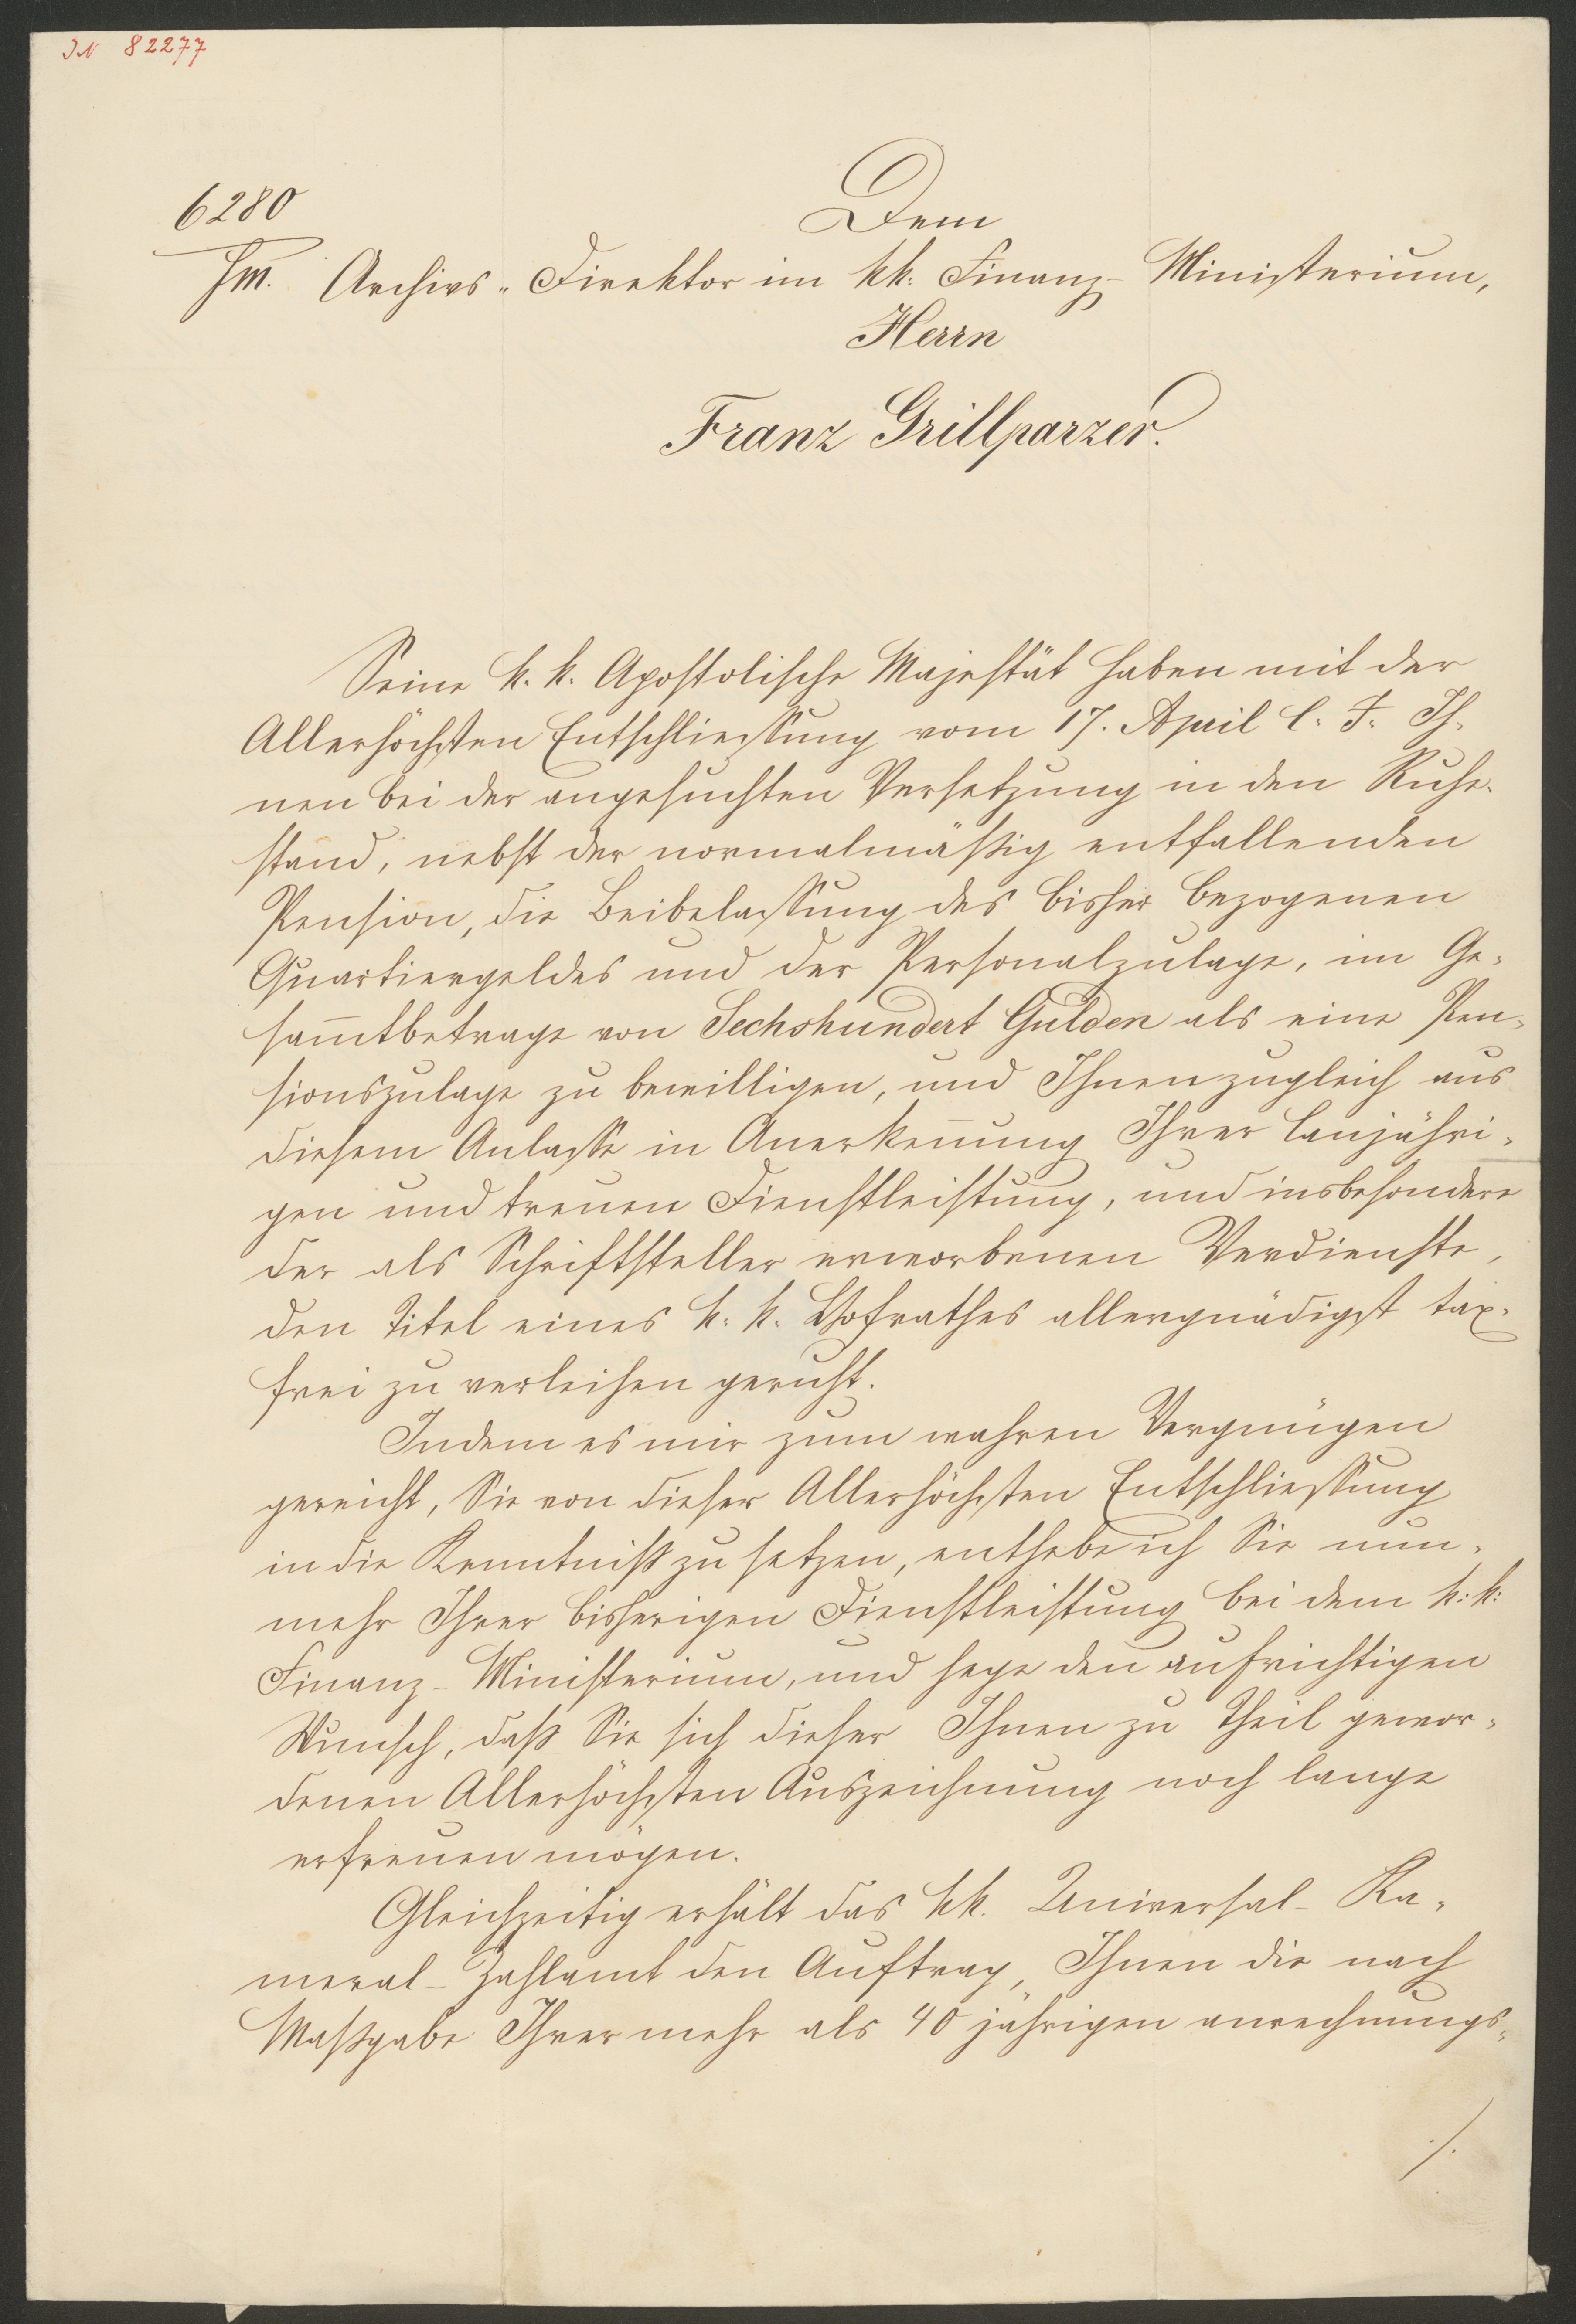 IN 82277
6280
FM.
Dem
Archivs-Direktor im kk. Finanz-Ministerium,
Herrn
Franz Grillparzer.
Seine k. k. Apostolische Majestät haben mit der
Allerhöchsten Entschliessung vom 17. April l. J. Ih-
nen bei der angesuchten Versetzung in den Ruhe-
stand, nebst der normalmäßig entfallenden
Pension, die Beibelassung des bisher bezogenen
Quartiergeldes und der Personalzulage, im Ge-
sam̅tbetrage von Sechshundert Gulden als eine Pen-
sionszulage zu bewilligen, und Ihnen zugleich aus
diesem Anlasse in Anerken̅ung Ihrer lanjähri-
gen und treuen Dienstleistung, und insbesondere
der als Schriftsteller erworbenen Verdienste,
den Titel eines k. k. Hofrathes allergnädigst tax-
frei zu verleihen geruht.
Indem es mir zum wahren Vergnügen
gereicht, Sie von dieser Allerhöchsten Entschliessung
in die Kenntniß zu setzen, enthebe ich Sie nun-
mehr Ihrer bisherigen Dienstleistung bei dem k: k:
Finanz-Ministerium, und hege den aufrichtigen
Wunsch, daß Sie sich dieser Ihnen zu Theil gewor-
denen Allerhöchsten Auszeichnung noch lange
erfreuen mögen.
Gleichzeitig erhält das kk. Universal-Ka-
meral-Zahlamt den Auftrag, Ihnen die nach
Maßgabe Ihrer mehr als 40 jährigen anrechnungs-
./.